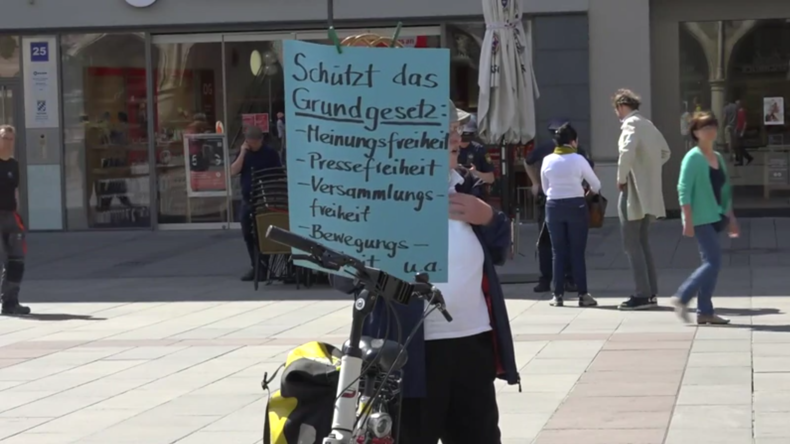 25
Schützt das
Grundgesetz:
- Meinungsfreiheit
- Pressefreiheit
- Versammlungs-
freiheit
- Bewegungs-
u.a.